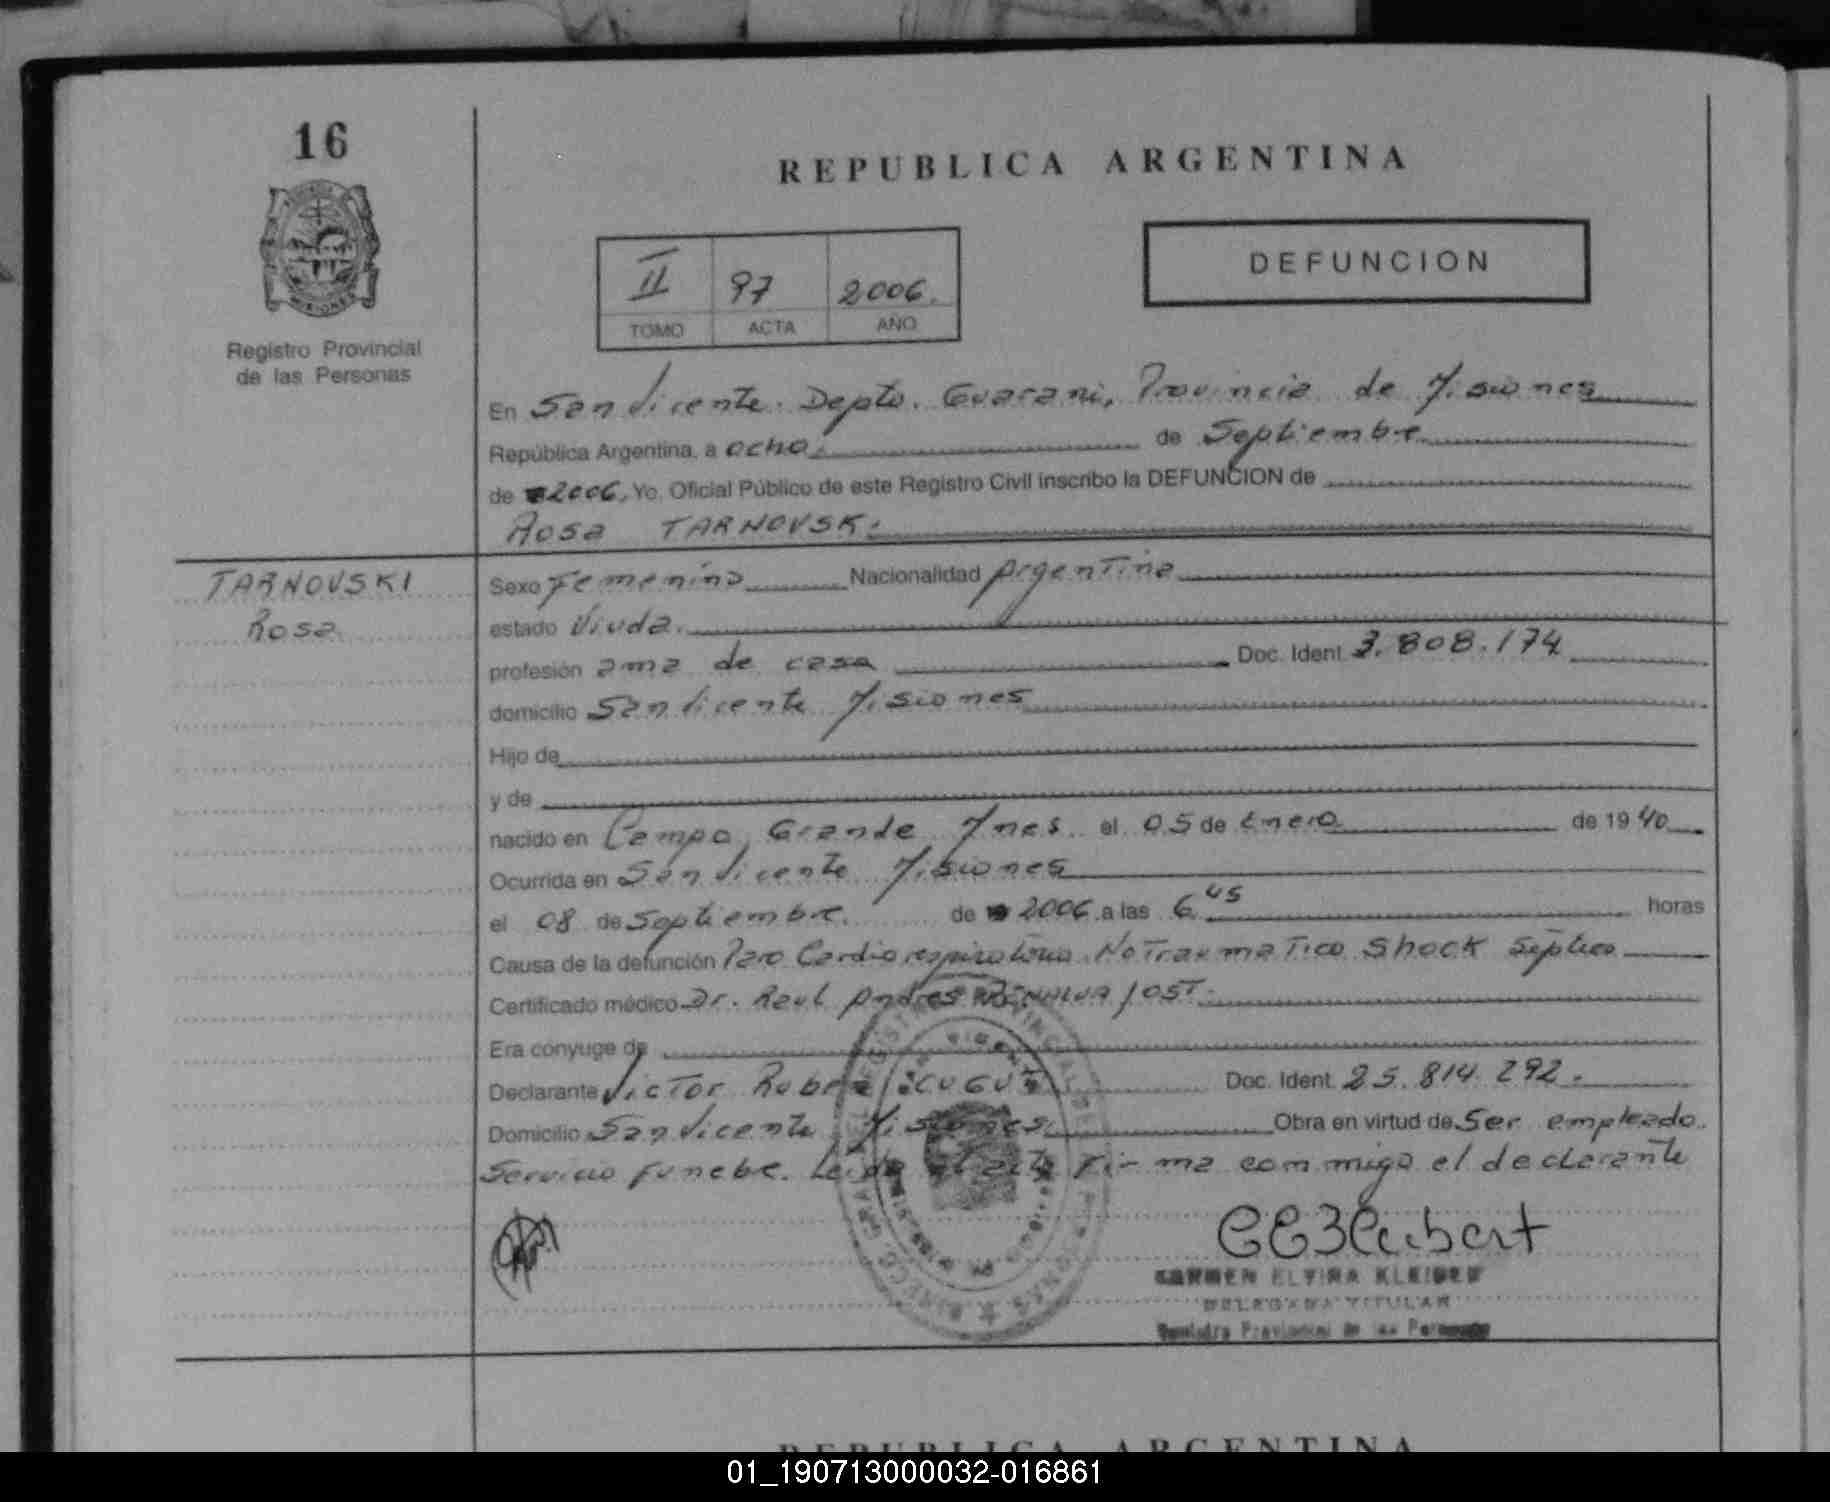 16
REPUBLICA ARGENTINA
II 97 2006.
TOMO ACTA AÑO
DEFUNCION
Registro Provincial
de las Personas
En San Vicente. Depto. Guarani, Provincia de Misiones
República Argentina, a ocho. de Septiembre
de 2006, Yo, Oficial Público de este Registro Civil inscribo la DEFUNCION de
Rosa TARNOVSKI
TARNOVSKI
Rosa
Sexo Femenino Nacionalidad Argentina
estado Viuda.
profesión ama de casa Doc. Ident. 3.808.174
domicilio San Vicente Misiones
Hijo de
y de
nacido en Campo Grande Mnes el 05 de Enero de 1940
Ocurrida en San Vicente Misiones
el 08 de Septiembre. de 2006 a las 6 45 horas
Causa de la defunción Paro Cardiorespiratorio No Traumatico Shock Séptico
Certificado médico Dr. Raul Andres JOST
Era conyuge de
Declarante Victor Ruben Doc. Ident. 25.814.292.
Domicilio San Vicente Misiones Obra en virtud de Ser empleado
Servicio funebre. Leida el acta firma conmigo el declarante
CARMEN ELVIRA
DELEGADA TITULAR
Registro Provincial de las Personas
REPUBLICA ARGENTINA
01_190713000032-016861